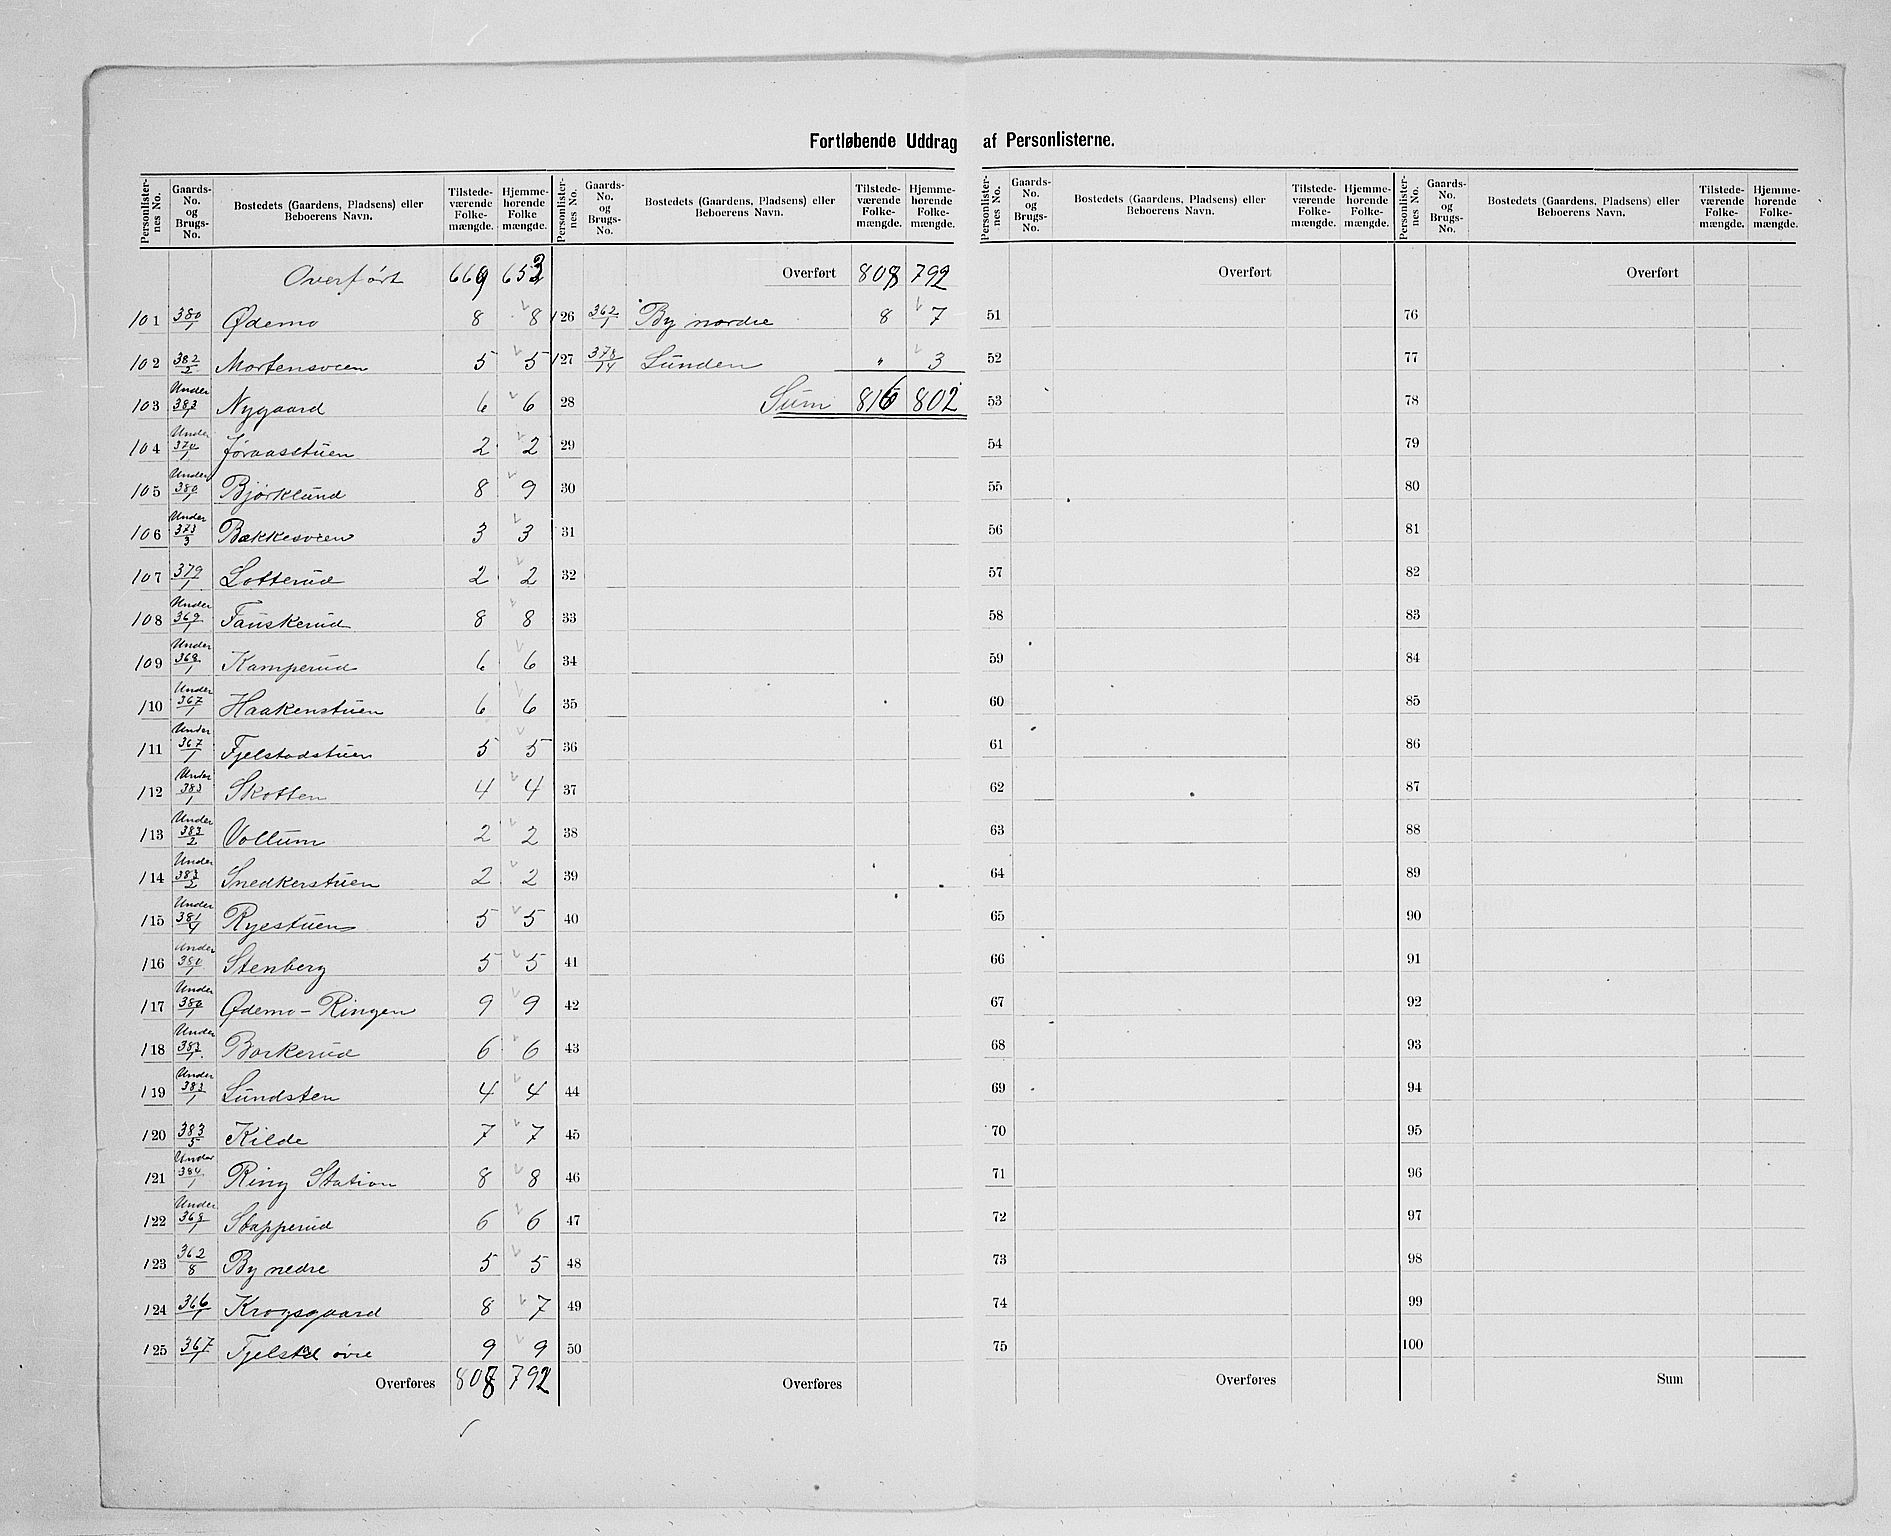 Fortløbende Uddrag af Personlisterne.
Personlister-nes No. Gaards-No. og Brugs-No. Bostedets (Gaardens, Pladsens) eller Beboerens Navn. Tilstede-værende Folke-mængde. Hjemme-hørende Folke mængde. Personlister-nes No. Gaards-No. og Brugs-No. Bostedets (Gaardens, Pladsens) eller Beboerens Navn. Tilstede-værende Folke-mængde. Hjemme-hørende Folke-mængde. Personlister-nes No. Gaards-No. og Brugs-No. Bostedets (Gaardens, Pladsens) eller Beboerens Navn. Tilstede-værende Folke-mængde. Hjemme-hørende Folke-mængde. Personlister-nes No. Gaards-No. og Brugs-No. Bostedets (Gaardens, Pladsens) eller Beboerens Navn. Tilstede-værende Folke-mængde. Hjemme-hørende Folke-mængde.
Overført 669 653
101 380/1 Ødemo 8 8
102 382/2 Mortensveen 5 5
103 Under 383/1 Nygaard 6 6
104 Under 370/1 Jøraasstuen 2 2
105 Under 380/1 Bjørklund 8 9
106 Under 373/3 Bakkesveen 3 3
107 379/1 Lotterud 2 2
108 Under 369/1 Fauskerud 8 8
109 Under 368/1 Kamperud 6 6
110 Under 367/1 Haakenstuen 6 6
111 Under 367/1 Fjelstadstuen 5 5
112 Under 383/1 Skotten 4 4
113 Under 383/2 Vollum 2 2
114 Under 383/2 Snedkerstuen 2 2
115 Under 381/4 Ryestuen 5 5
116 Under 380/1 Stenberg 5 5
117 Under 380/1 Ødemo-Ringen 9 9
118 Under 383/1 Borkerud 6 6
119 Under 383/1 Lundsten 4 4
120 383/5 Kilde 7 7
121 Under 384/1 Ring Station 8 8
122 Under 368/1 Stapperud 6 6
123 362/8 By nedre 5 5
124 366/1 Krogsgaard 8 7
125 367/1 Fjelstad øvre 9 9
Overføres 808 792
Overført 808 792
126 362/1 By nordre 8 7
127 378/14 Lunden " 3
28 Sum 816 802
29
30
31
32
33
34
35
36
37
38
39
40
41
42
43
44
45
46
47
48
49
50
Overføres
Overført
51
52
53
54
55
56
57
58
59
60
61
62
63
64
65
66
67
68
69
70
71
72
73
74
75
Overføres
Overført
76
77
78
79
80
81
82
83
84
85
86
87
88
89
90
91
92
93
94
95
96
97
98
99
100
Sum